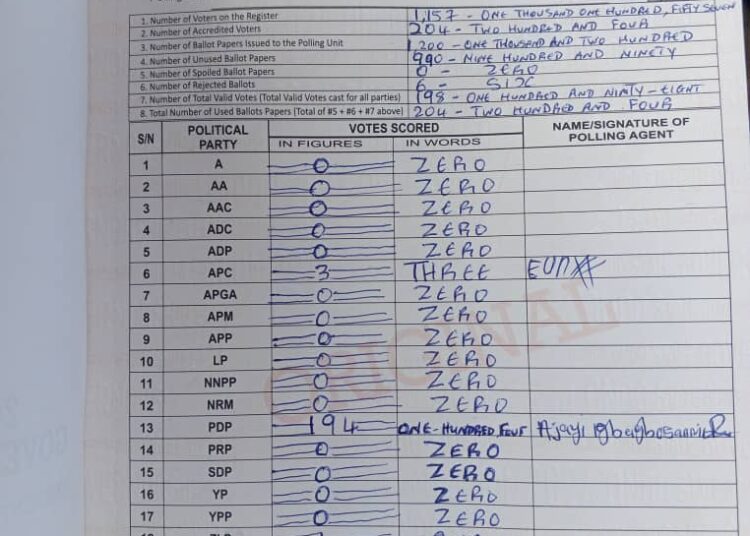 1. Number of Voters on the Register 1,157 - ONE THOUSAND ONE HUNDRED, FIFTY SEVEN
2. Number of Accredited Voters 204 - TWO HUNDRED AND FOUR
3. Number of Ballot Papers Issued to the Polling Unit 1,200 - ONE THOUSAND AND TWO HUNDRED
4. Number of Unused Ballot Papers 990 - NINE HUNDRED AND NINETY
5. Number of Spoiled Ballot Papers 0 - ZERO
6. Number of Rejected Ballots 6 - SIX
7. Number of Total Valid Votes (Total Valid Votes cast for all parties) 198 - ONE HUNDRED AND NINTY-EIGHT
8. Total Number of Used Ballots Papers (Total of #5 + #6 + #7 above) 204 - TWO HUNDRED AND FOUR
S/N POLITICAL PARTY VOTES SCORED NAME/SIGNATURE OF POLLING AGENT
IN FIGURES IN WORDS
1 A 0 ZERO
2 AA 0 ZERO
3 AAC 0 ZERO
4 ADC 0 ZERO
5 ADP 0 ZERO
6 APC 3 THREE
7 APGA 0 ZERO
8 APM 0 ZERO
9 APP 0 ZERO
10 LP 0 ZERO
11 NNPP 0 ZERO
12 NRM 0 ZERO
13 PDP 194 ONE-HUNDRED, FOUR Ajayi
14 PRP 0 ZERO
15 SDP 0 ZERO
16 YP 0 ZERO
17 YPP 0 ZERO
ORIGINAL